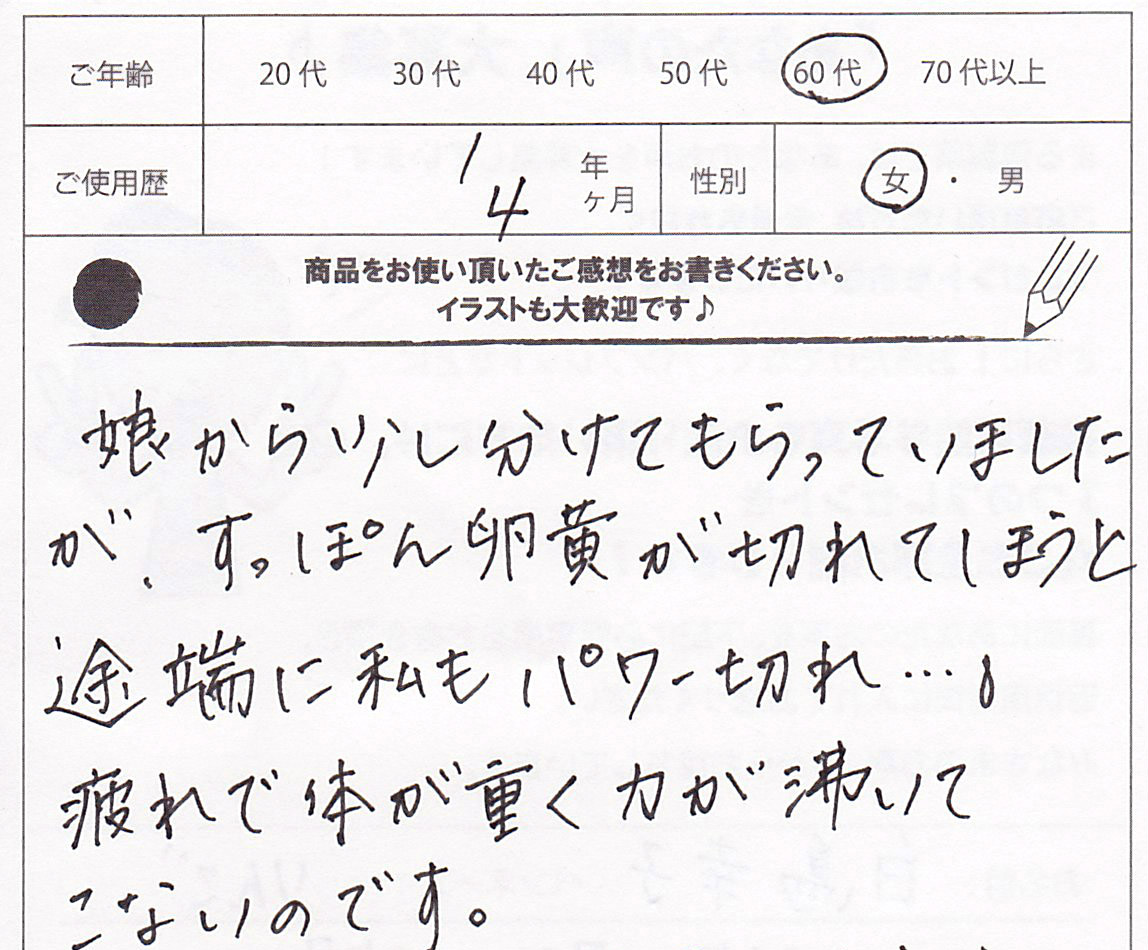 ご年齢 20代 30代 40代 50代 60代 70代以上
ご使用歴 1年 4ヶ月 性別 女・男
商品をお使い頂いたご感想をお書きください。
イラストも大歓迎です♪
娘から少し分けてもらっていました
が、すっぽん卵黄が切れてしまうと
途端に私もパワー切れ…。
疲れで体が重く力が沸いて
こないのです。